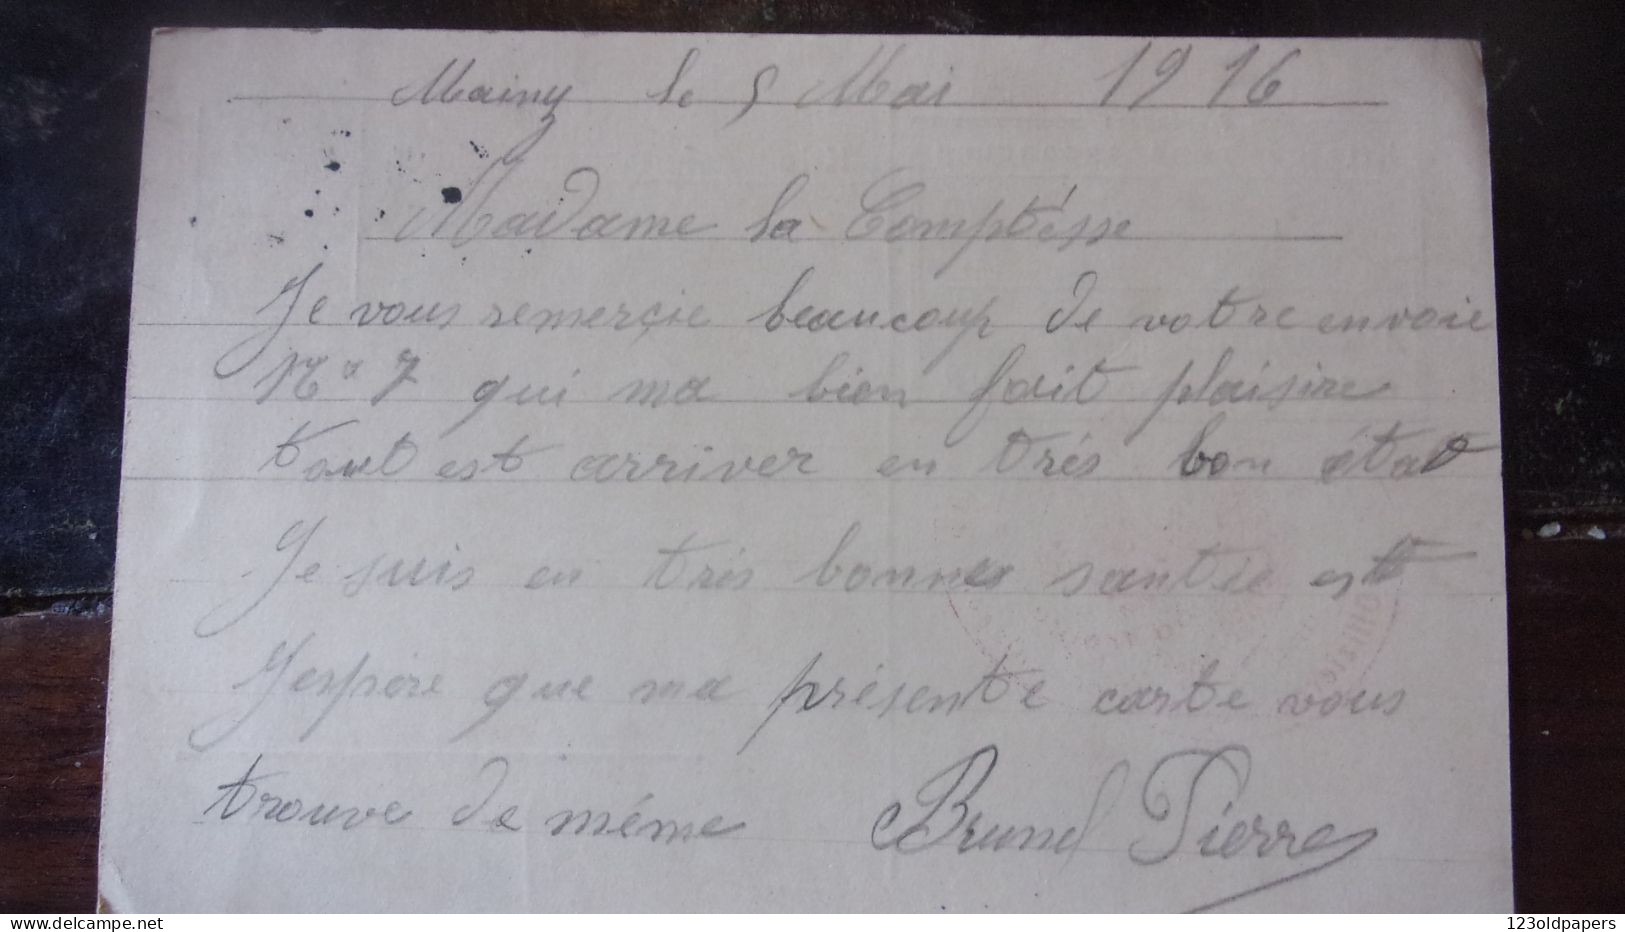 Mainy le 5 Mai 1916
Madame la Comptésse
Je vous remerçie beaucoup de votre envoie
No 7 qui ma bien fait plaisire
tout est arriver en trés bon état
Je suis en trés bonne santée est
J'espére que ma présente carte vous
trouve de méme Brunel Pierre
www.delcampe.net
123oldpapers